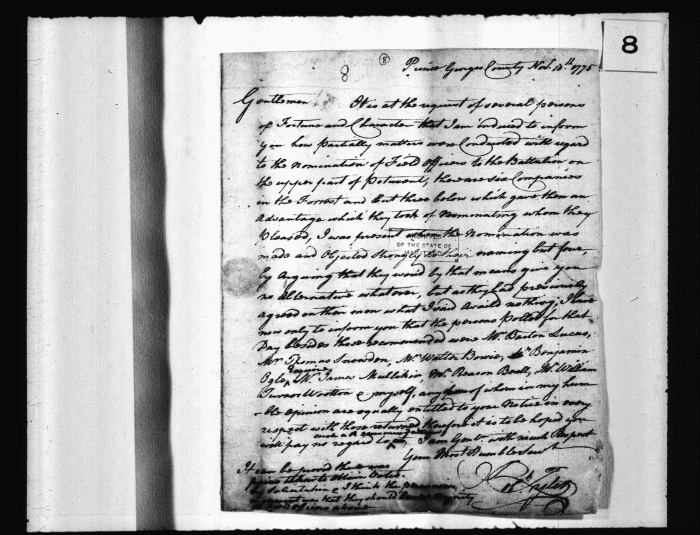 8
8
8
Prince Georges County Nov. 13th 1775
Gentlemen It is at the request of several persons
of Fortune and Character that I am induced to inform
you how partially matters were Conducted with regard
to the Nomination of Field Officers to the Battalion on
the upper part of Potuxent, there are six Companies
in the Forrest and but three below which gave them an
Advantage which they took of Nominating whom they
Pleased, I was present when the Nomination was
OF THE STATE OF
made and Objected strongly to their naming but four,
by Arguing that they would by that means give you
no Alternative whatever, but as they had previously
agreed on their men what I said Availd nothing; I have
now only to inform you that the persons Polled for that
Day besides those recommended were Mr. Barton Lucas,
Mr. Thomas Snowden, Mr. Walter Bowie, Mr Benjamin
Ogle, Mr. James Mullikin, Mr. Reason Beall, Mr. William
Turner Wootton & myself, any of whom in my hum
ble Opinion are equally entitled to your Notice in every
respect with those returned therefore it is to be hoped you
will pay no regard to I am Gent. with much Respect
Your Most Humble Servt
It can be proved there was
to Obtain Votes
by Solicitation & I think the
that they should
above